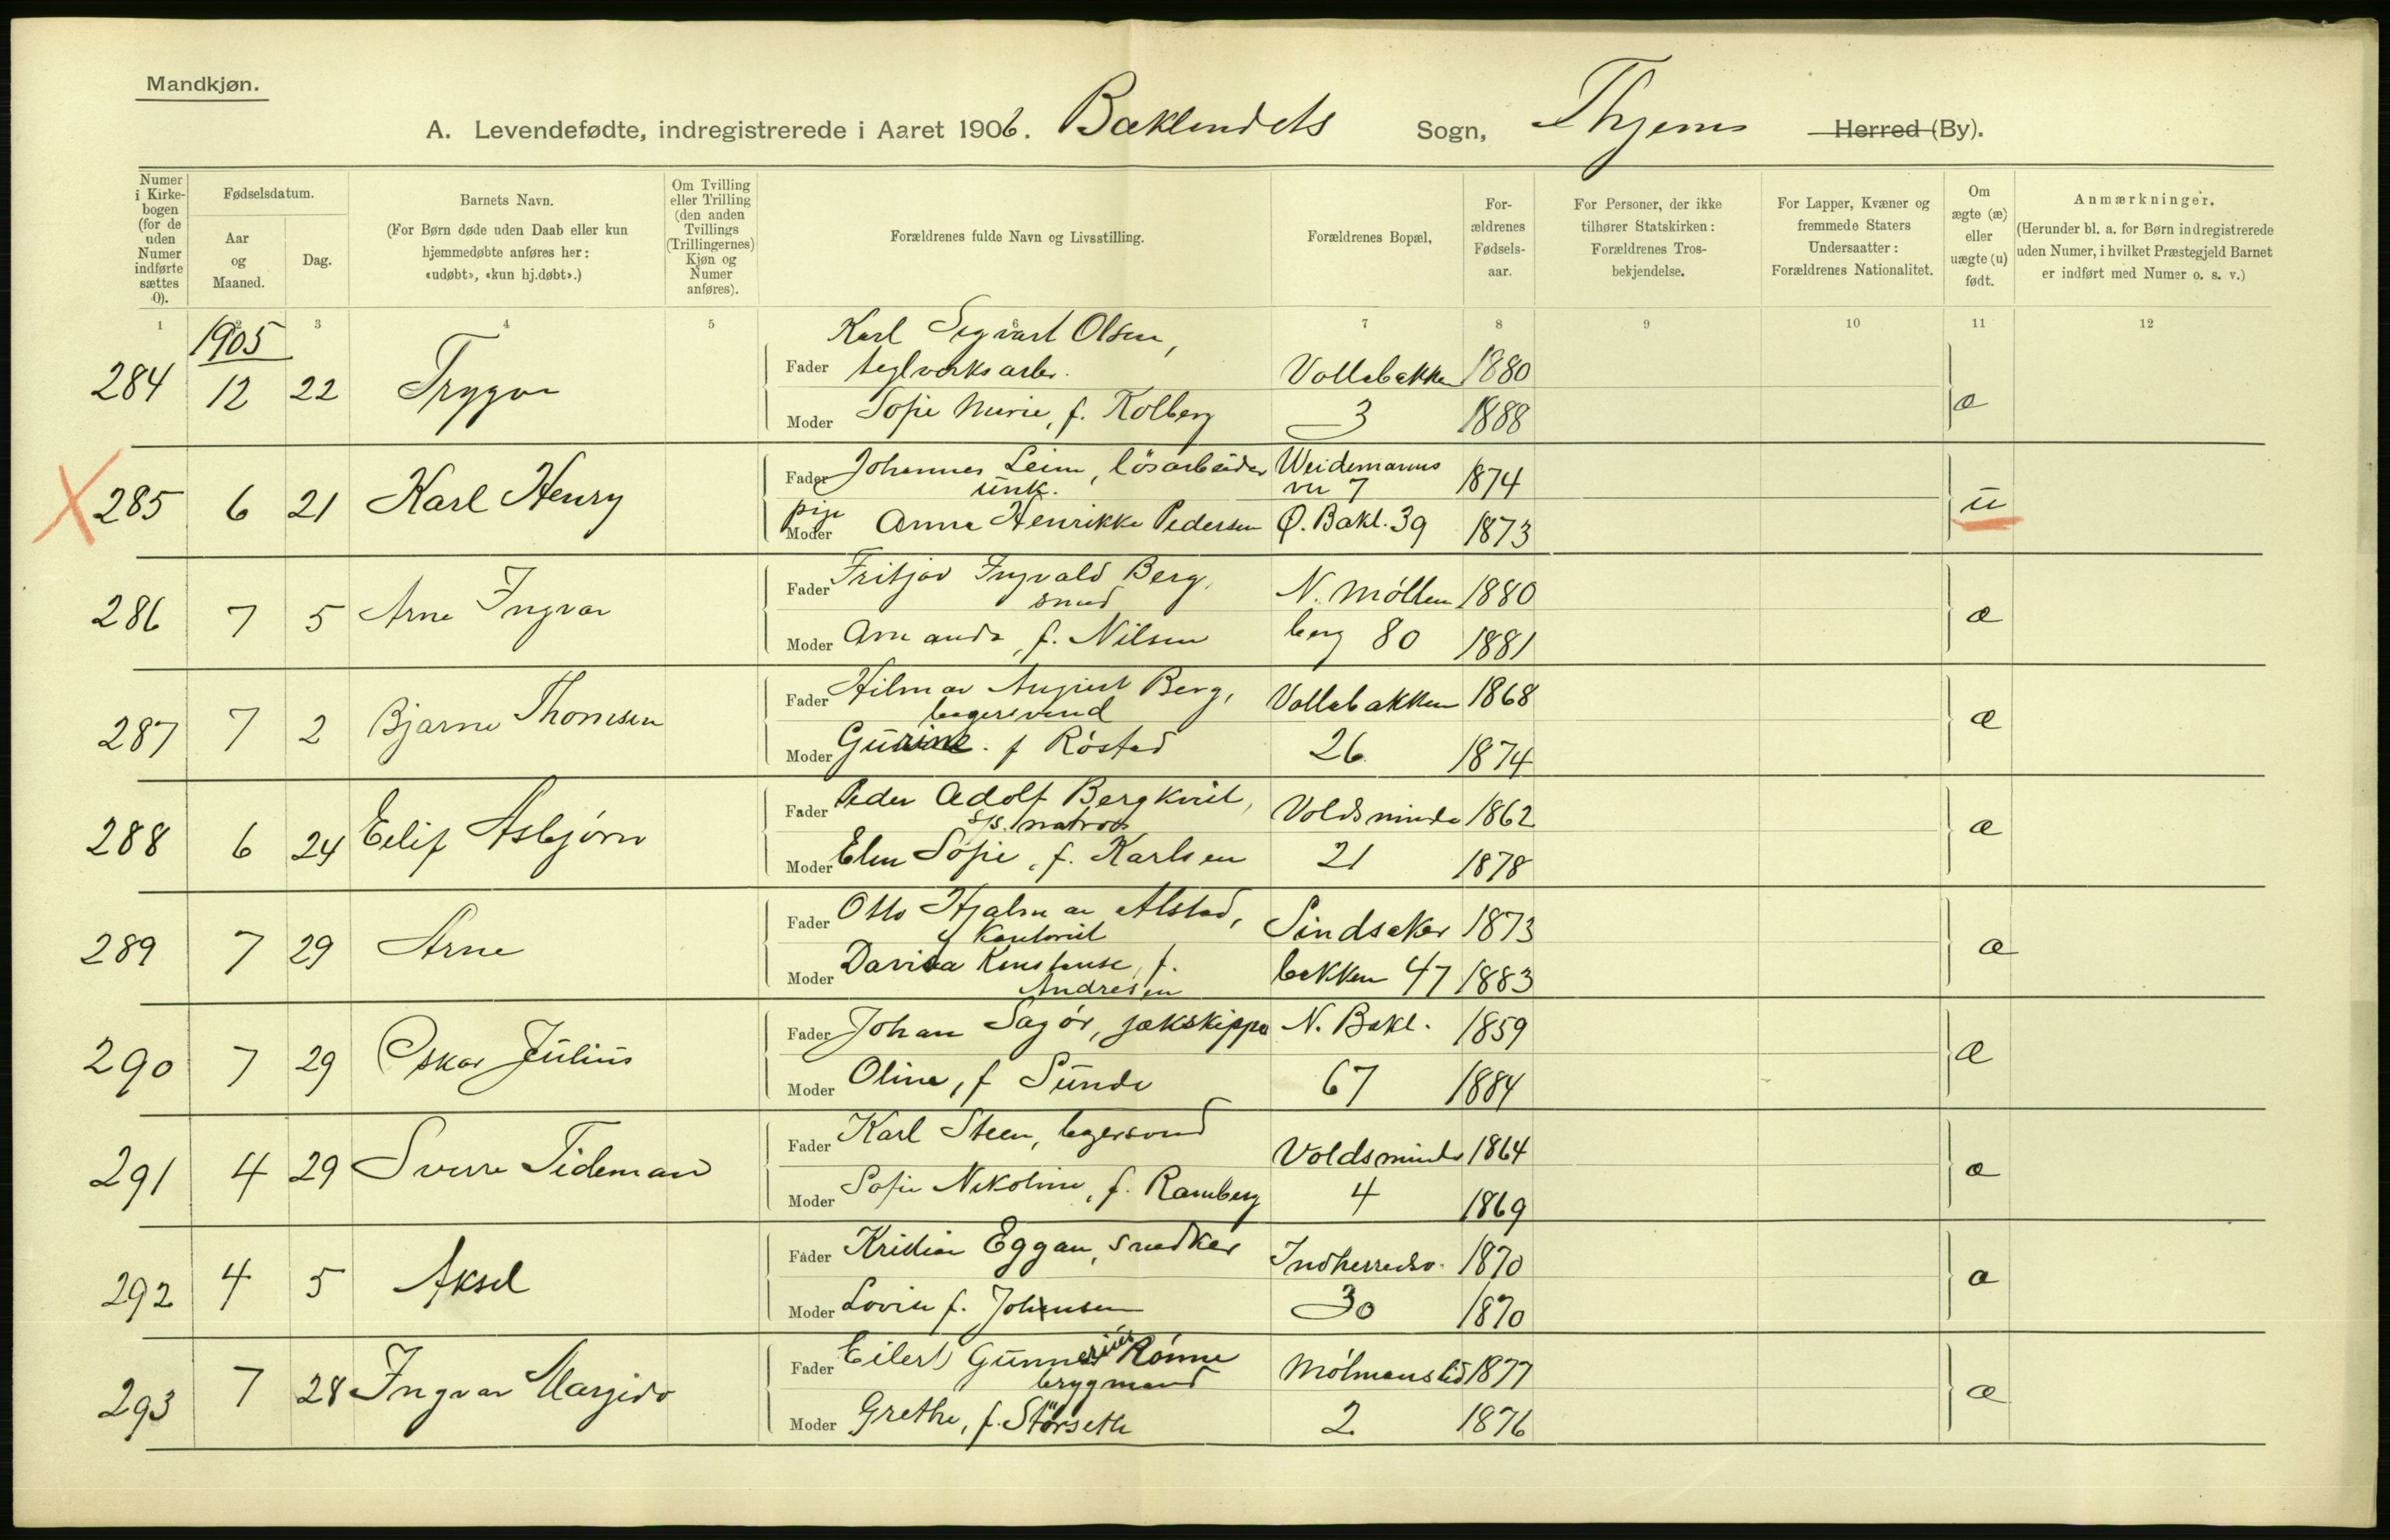 Mandkjøn.
A. Levendefødte, indregistrerede i Aaret 1906. Baklandets Sogn, Thjems Herred (By).
Numer i Kirkebogen (for de uden Numer indførte sættes 0).
Fødselsdatum.
Aar og Maaned.
Dag.
Barnets Navn.
(For Børn døde uden Daab eller kun hjemmedøbte anføres her: «udøbt», «kun hj.døbt».)
Om Tvilling eller Trilling (den anden Tvillings (Trillingernes) Kjøn og Numer anføres).
Forældrenes fulde Navn og Livsstilling.
Forældrenes Bopæl.
Forældrenes Fødselsaar.
For Personer, der ikke tilhører Statskirken: Forældrenes Trosbekjendelse.
For Lapper, Kvæner og fremmede Staters Undersaatter: Forældrenes Nationalitet.
Om ægte (æ) eller uægte (u) født.
Anmærkninger.
(Herunder bl. a. for Børn indregistrerede uden Numer, i hvilket Præstegjeld Barnet er indført med Numer o. s. v.)
1 2 3 4 5 6 7 8 9 10 11 12
1905
284 12 22 Trygve
Karl Sigvart Olsen,
Fader teglverksarb. Vollabakken 1880
Moder Sofie Marie, f. Kolberg 3 1888 æ
285 6 21 Karl Henry
Fader Johannes Leim, løsarbeider Weidemanns 1874
unk. vei 7
pige
Moder Anna Henrikke Pedersen Ø. Bakl. 39 1873 u
286 7 5 Arne Ingvar
Fader Fritjov Ingvald Berg, N. Møllen 1880
smed
Moder Amanda, f. Nilsen berg 80 1881 æ
287 7 2 Bjarne Thomsen
Fader Hilmar August Berg, Vollabakken 1868
bagersvend
Moder Gurine. f Røstad 26 1874 æ
288 6 24 Eilif Asbjørn
Fader Peder Adolf Bergkvist, Voldsminde 1862
s/s. matros
Moder Elen Sofie, f. Karlsen 21 1878 æ
289 7 29 Arne
Fader Otto Hjalmar Alstad, Sindsaker 1873
Kontorist
Moder Davida Konstanse, f. bakken 47 1883
Andresen æ
290 7 29 Oskar Julius
Fader Johan Sagør, jækskipper N. Bakl. 1859
Moder Oline, f Sunde 67 1884 æ
291 4 29 Sverre Tideman
Fader Karl Steen, bagersvend Voldsminde 1864
Moder Sofie Nikoline, f. Ramberg 4 1869 æ
292 4 5 Aksel
Fader Kristian Eggan, snedker Indherredsv. 1870
Moder Lovise f. Johansen 30 1870 æ
293 7 28 Ingvar Margido
Fader Eilert Gunnerius Rønne Mølmanslid 1877
brygmand
Moder Grethe, f. Størseth 2 1876 æ